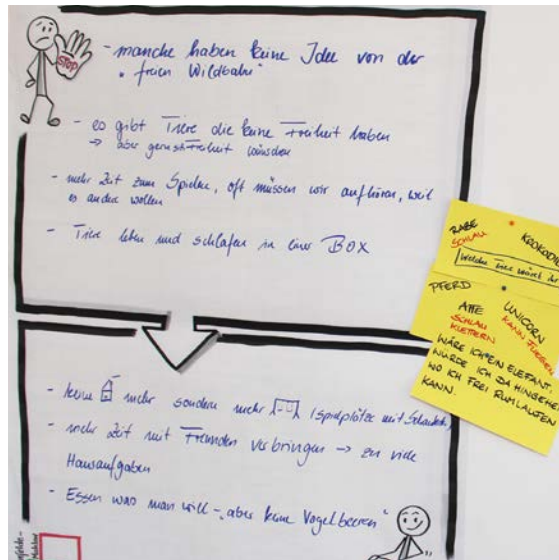 STOP
- manche haben keine Idee von der
"freien Wildbahn"
- es gibt Tiere die keine Freiheit haben
→ aber gerne Freiheit wünschen
- mehr Zeit zum Spielen, oft müssen wir aufhören, weil
es andere wollen
- Tiere leben und schlafen in einer BOX
- keine mehr sondern mehr (Spielplätze mit
- mehr Zeit mit Freunden verbringen → zu viele
Hausaufgaben
- Essen was man will - "aber keine Vogelbeeren"
RABE
SCHLAU
KROKODIL
Welche Tiere wärst ihr
PFERD
AFFE
SCHLAU
KLETTERN
UNICORN
KANN FLIEGEN
WÄRE ICH EIN ELEFANT,
WÜRDE ICH DA HINGEHEN
WO ICH FREI RUMLAUFEN
KANN.